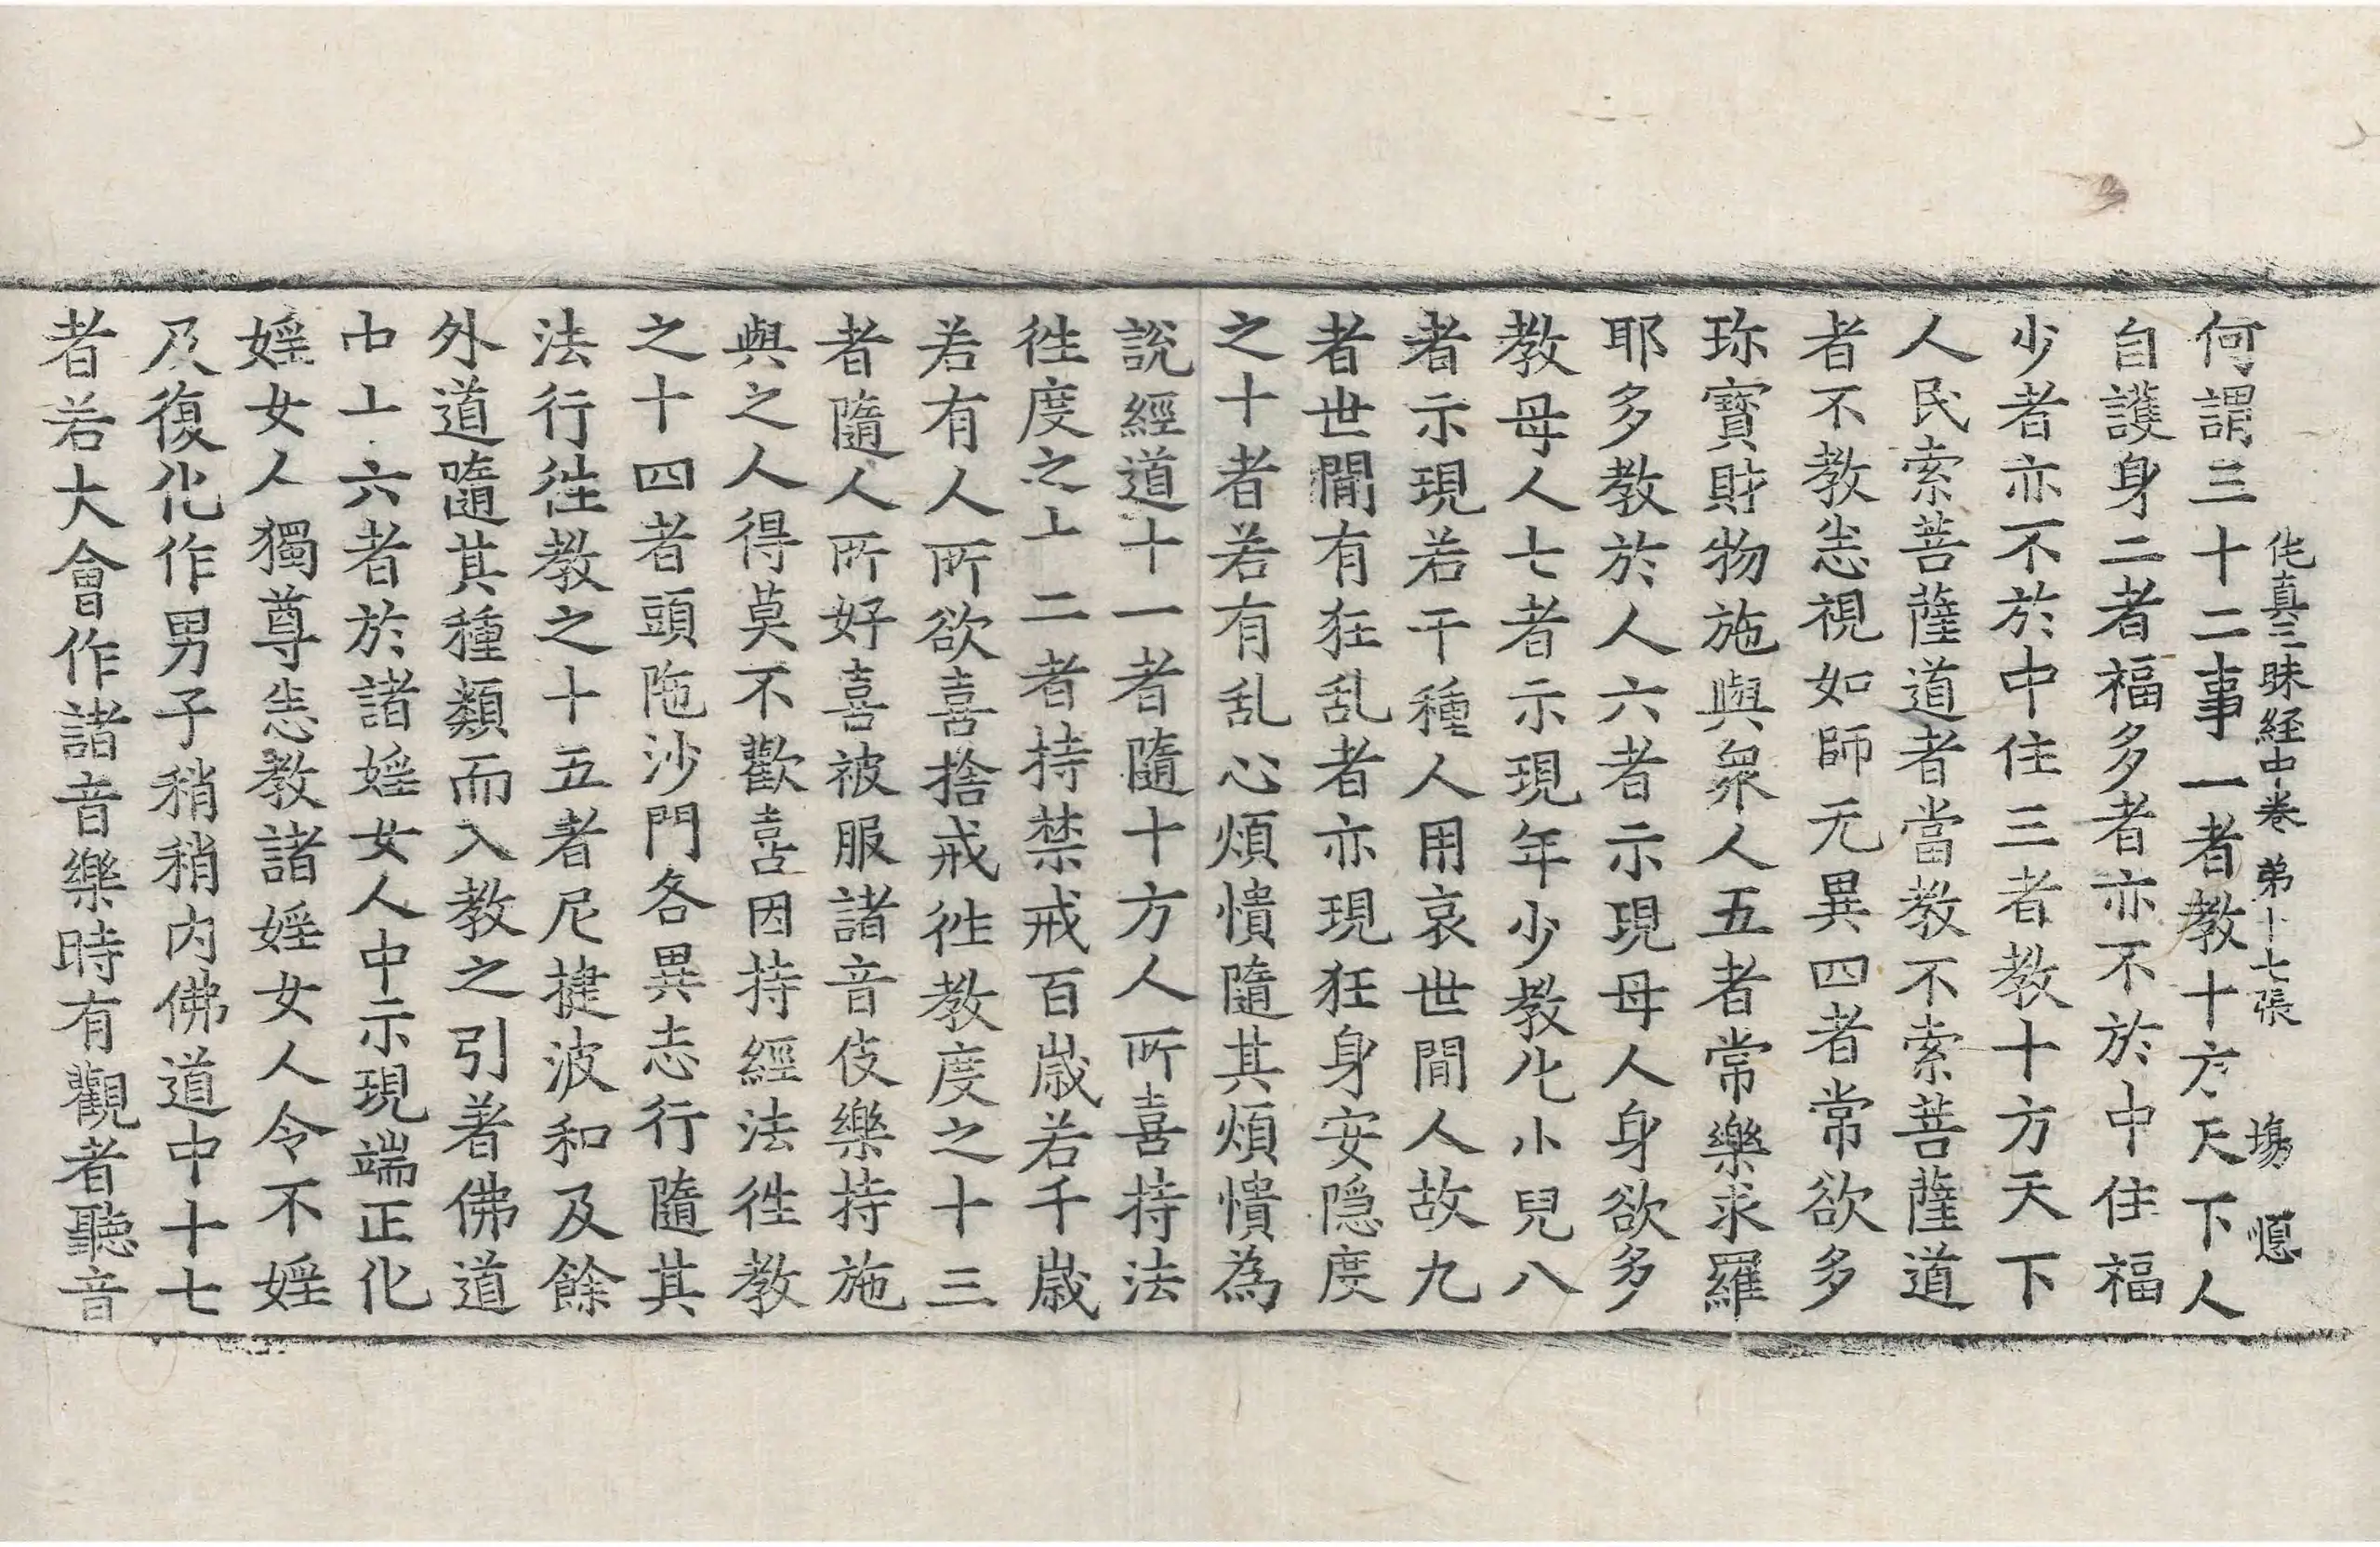 佗真三昧経中卷 弟十七張 塲 㥶
何謂三十二事一者教十方天下人
自護身二者福多者亦不於中住福
少者亦不於中住三者教十方天下
人民索菩薩道者當教不索菩薩道
者不教恚視如師无異四者常欲多
珎寳財物施與衆人五者常樂求羅
耶多教於人六者示現母人身欲多
教母人七者示現年少教化小兒八
者示現若干種人用哀世間人故九
者世間有狂乱者亦現狂身安隐度
之十者若有乱心煩憒隨其煩憒為
說經道十一者隨十方人所喜持法
徃度之十二者持禁戒百歳若千歳
若有人所欲喜捨戒徃教度之十三
者隨人所好喜被服諸音伎樂持施
與之人得莫不歡喜因持經法徃教
之十四者頭陁沙門各異志行隨其
法行徃教之十五者尼揵波和及餘
外道隨其種類而入教之引著佛道
中十六者於諸婬女人中示現端正化
婬女人獨尊恚教諸婬女人令不婬
及復化作男子稍稍内佛道中十七
者若大會作諸音樂時有觀者聽音